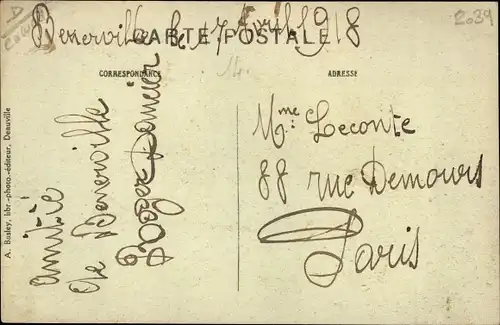 Benerville le 17 Avril 1918
CARTE POSTALE
2039
CORRESPONDANCE
ADRESSE
14
Amitié
de Benerville
Roger
Mme Leconte
88 rue Demours
Paris
A. Busley, libr.-photo.-éditeur, Deauville